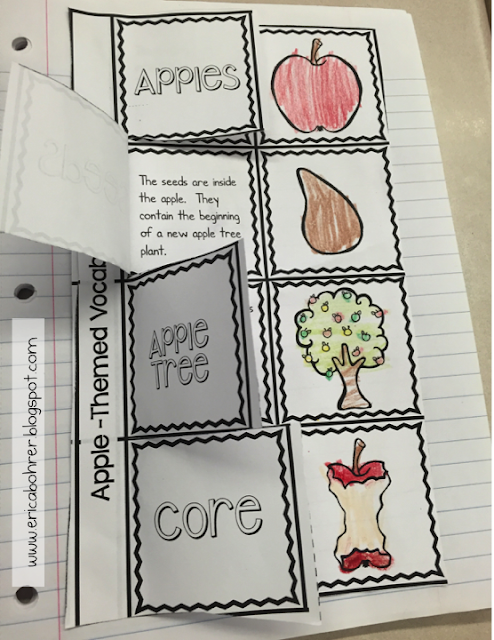 APPLES
The seeds are inside
the apple. They
contain the beginning
of a new apple tree
plant.
APPLE
TREE
core
Apple -Themed Vocab
www.ericabohrer.blogspot.com